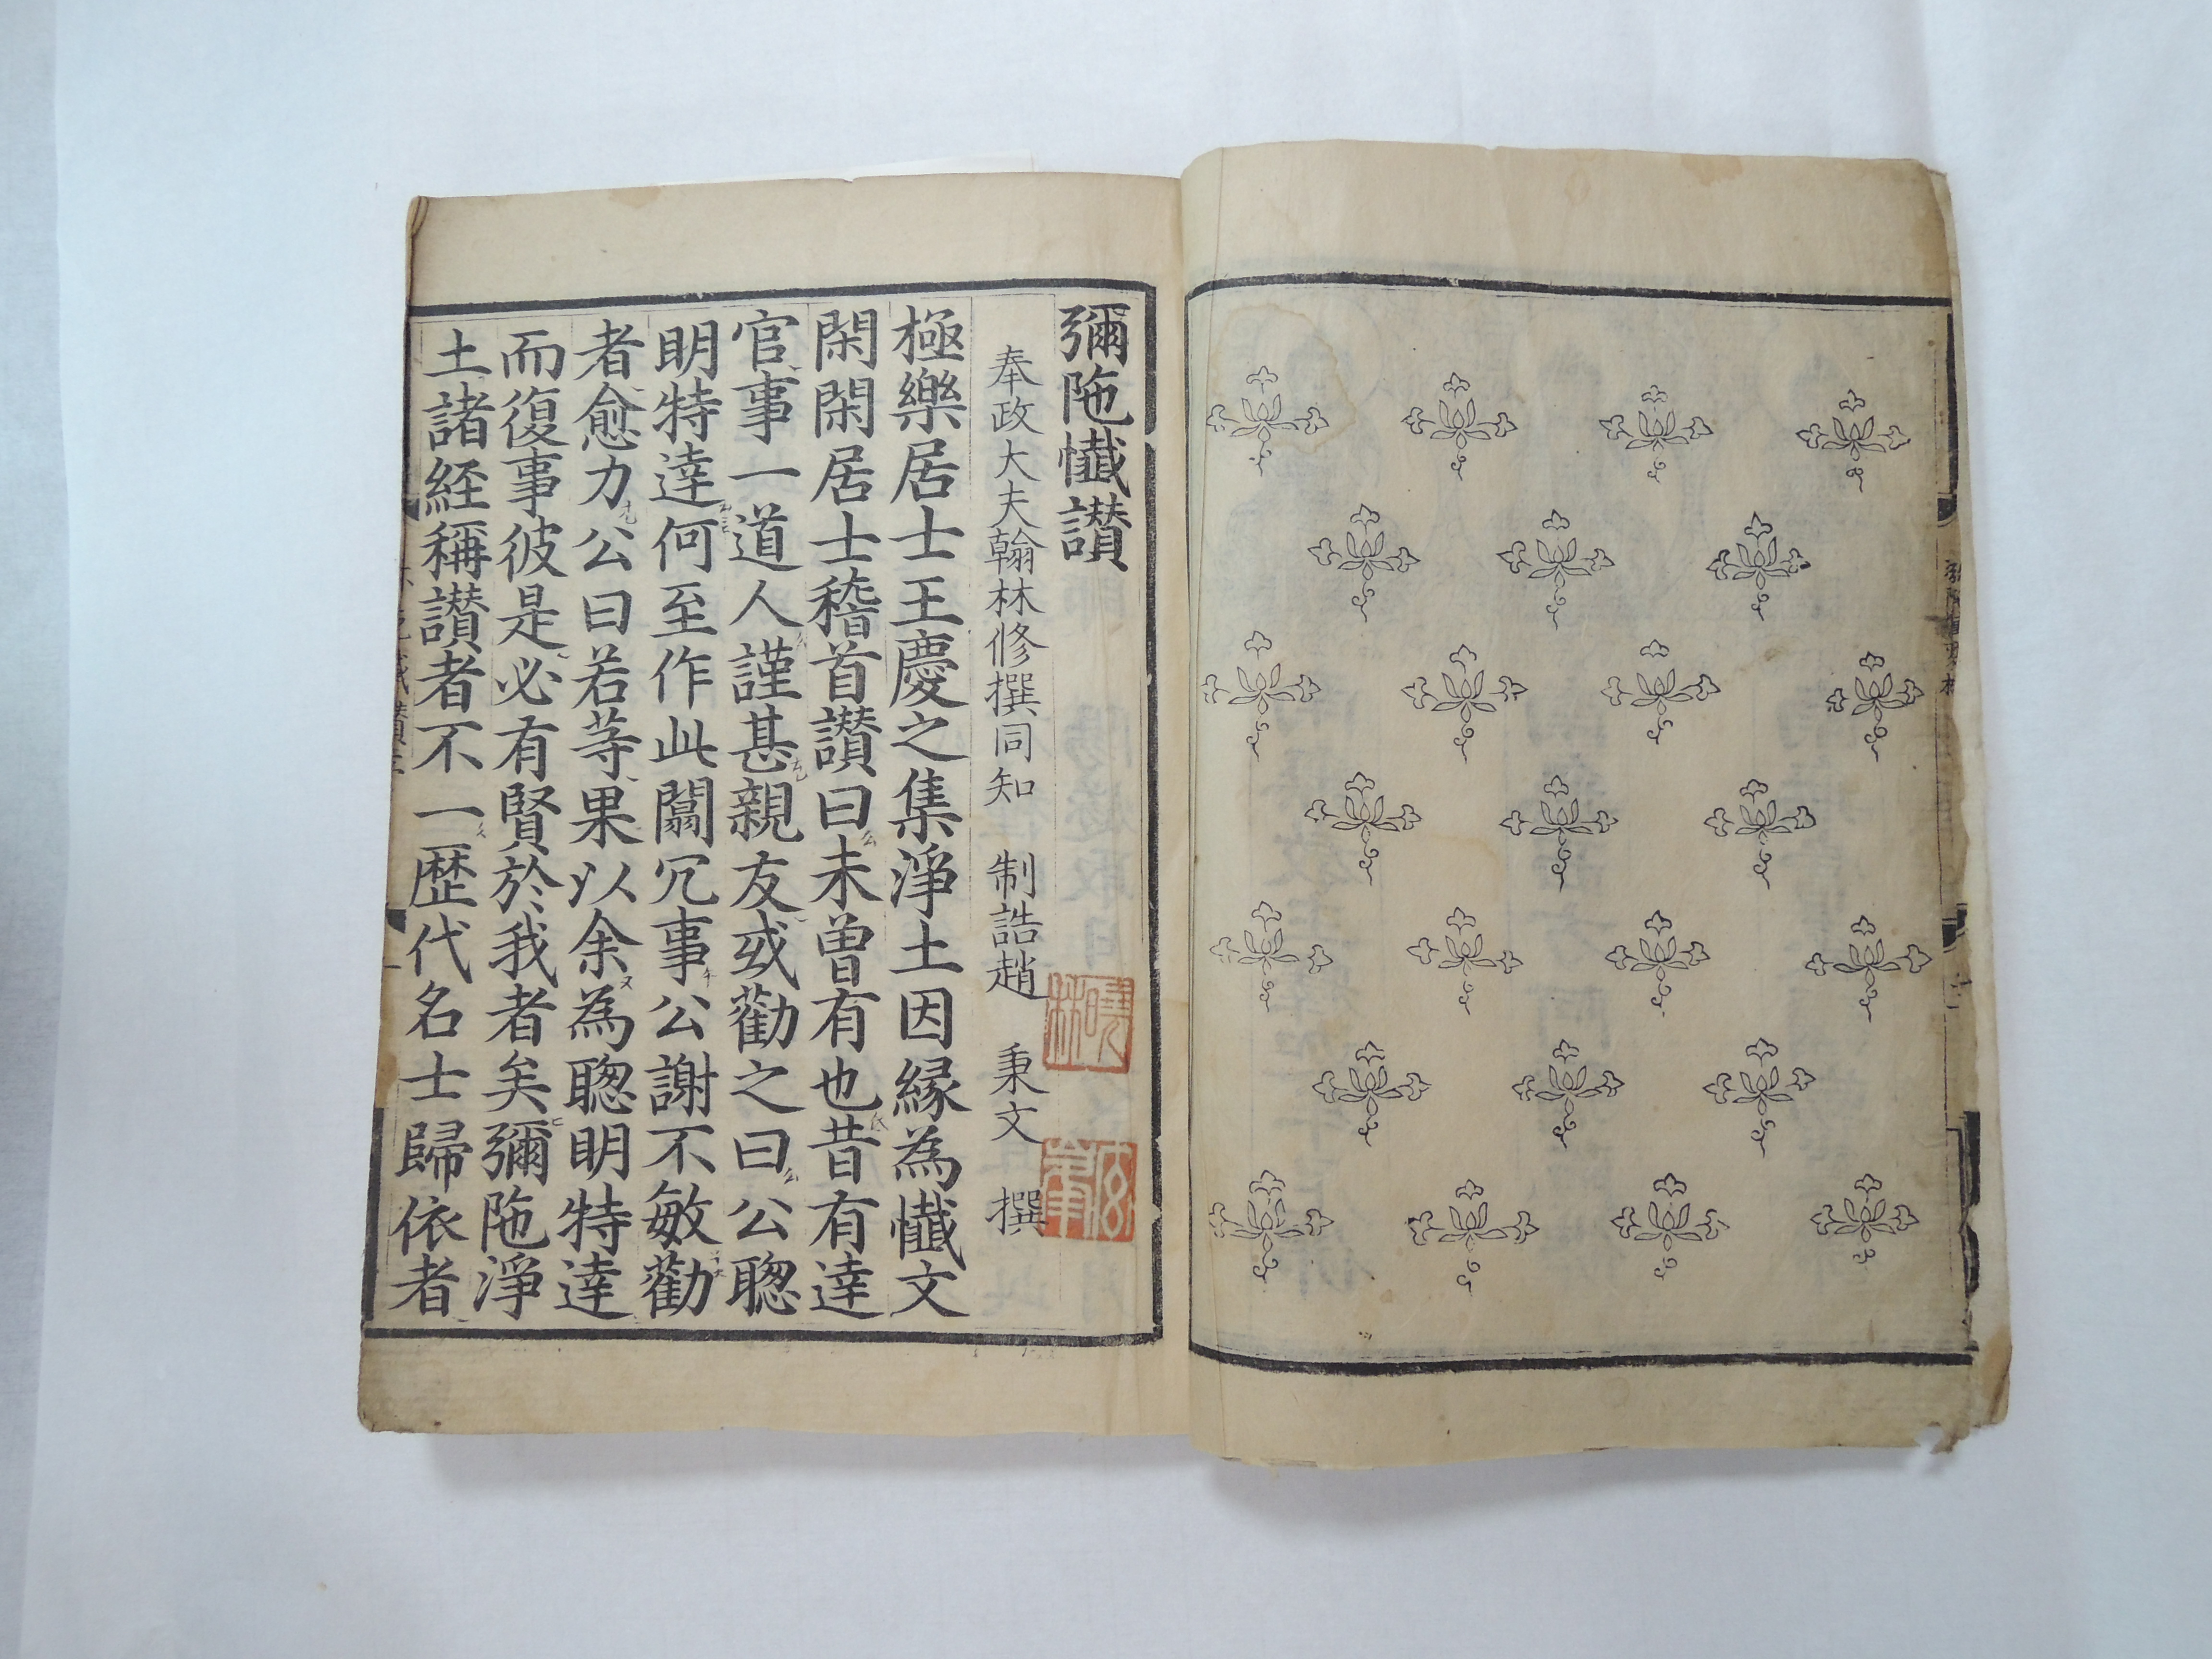 彌陁懴讃
奉政大夫翰林修撰同知 制誥趙 秉文 撰
極樂居士王慶之集淨土因縁為懴文
閑閑居士稽首讃曰未曽有也昔有達
官事一道人謹甚親友或勸之曰公聦
明特達何至作此闒冗事公謝不敏勸
者愈力公曰若等果以余為聦明特達
而復事彼是必有賢於我者矣彌陁淨
土諸経稱讃者不一歴代名士歸依者